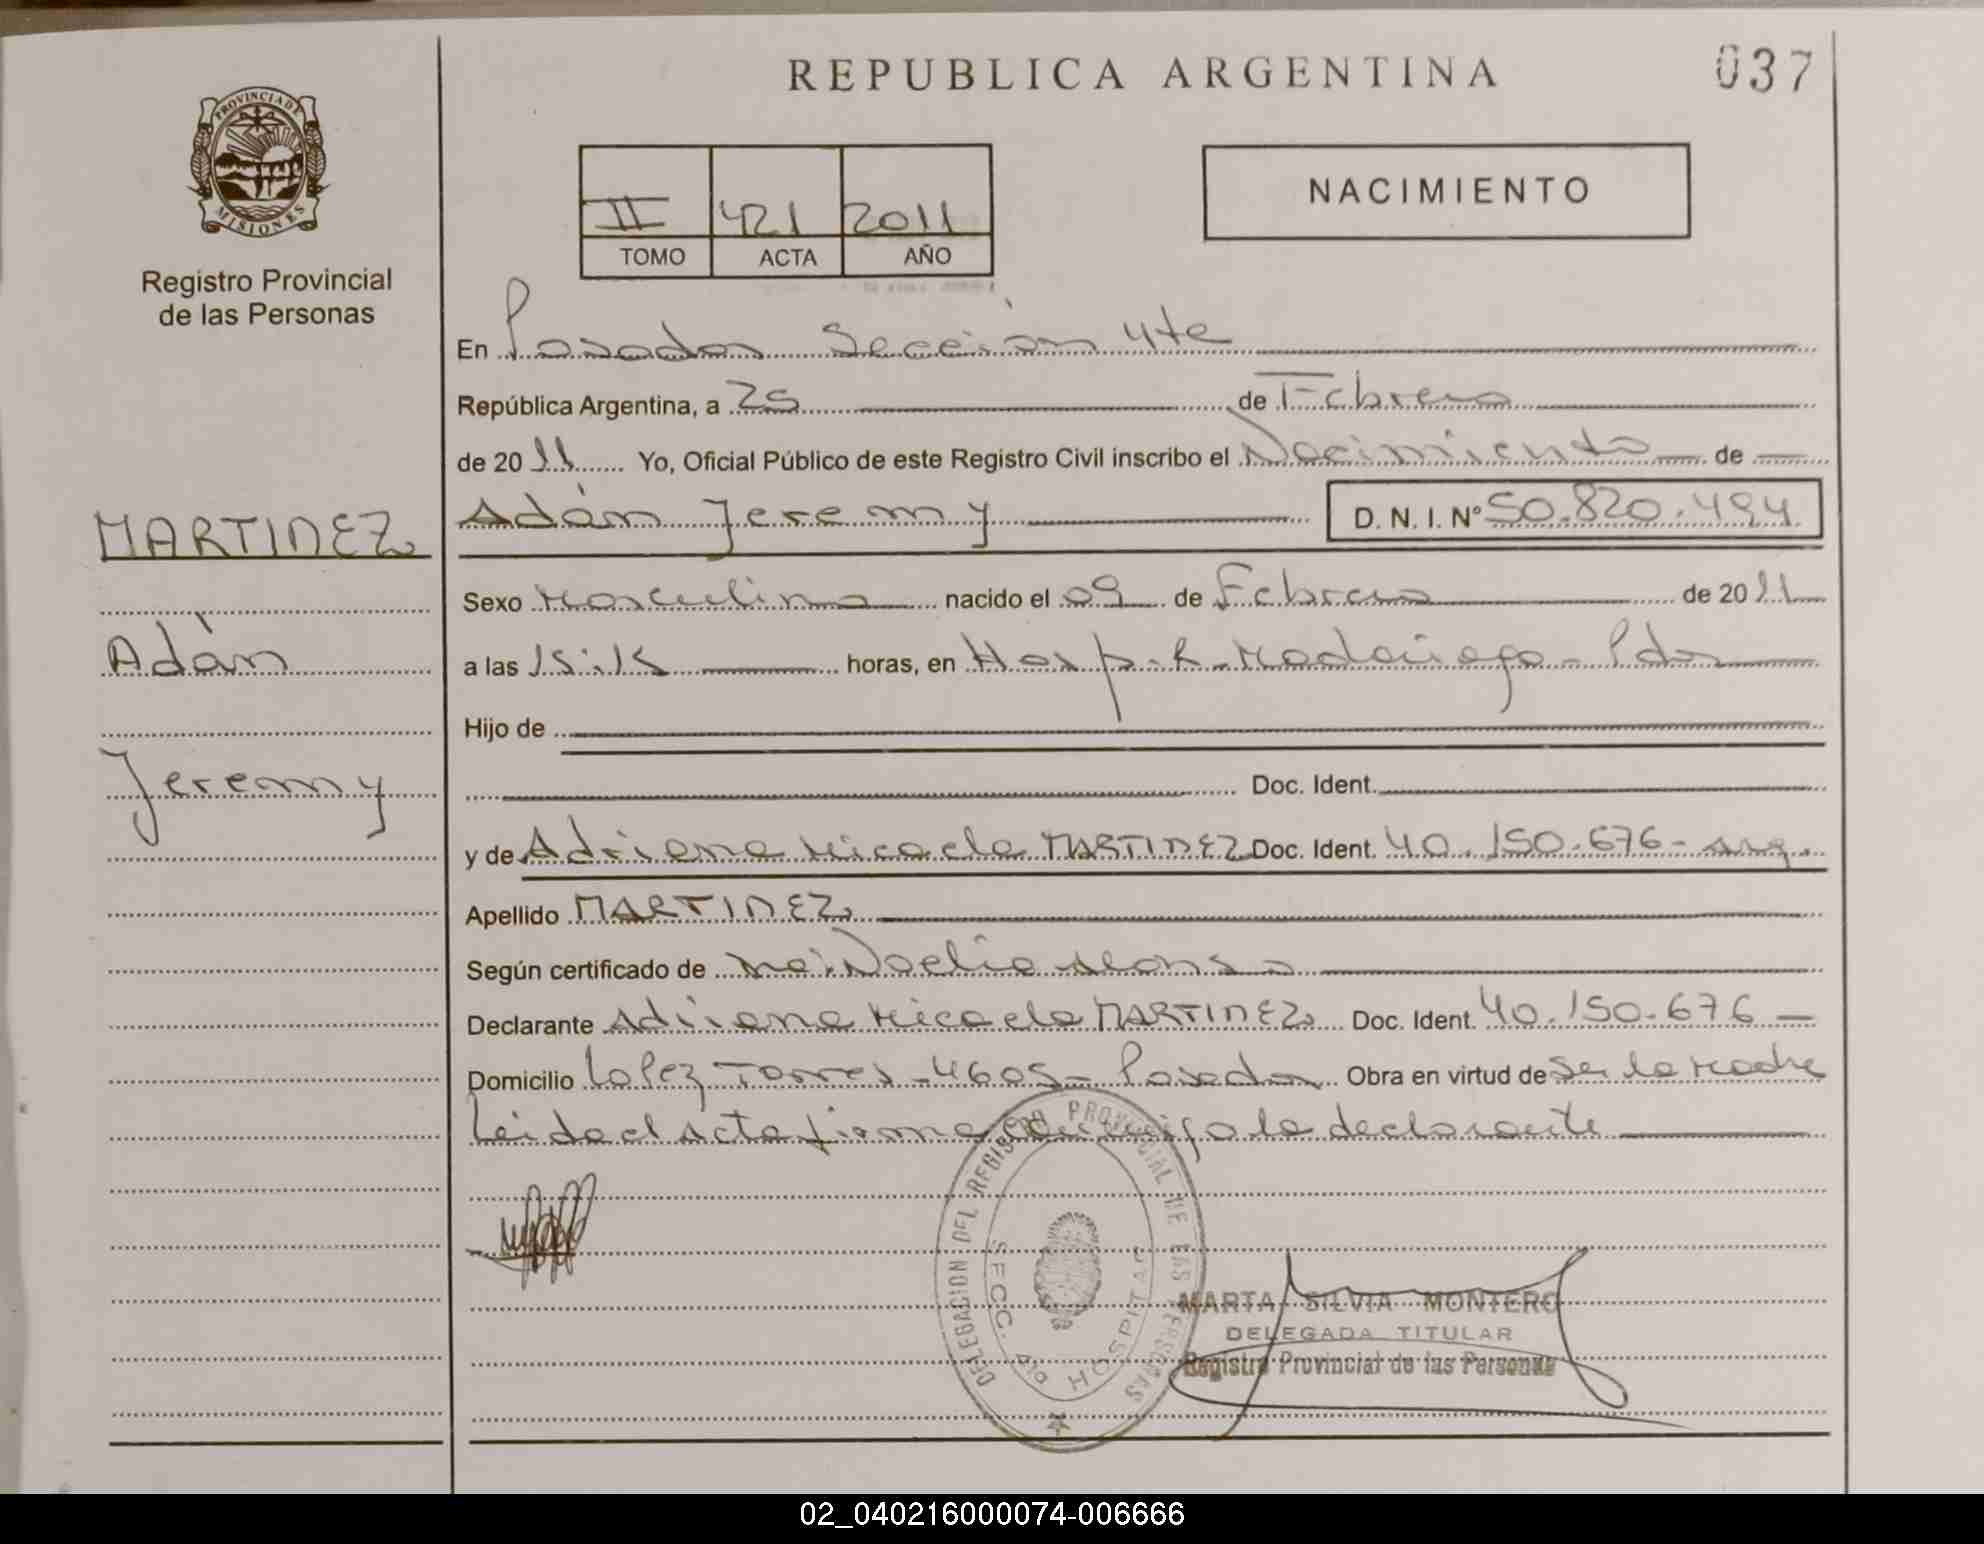 REPUBLICA ARGENTINA
037
PROVINCIA DE
MISIONES
Registro Provincial
de las Personas
II 421 2011
TOMO ACTA AÑO
NACIMIENTO
En Posadas Sección 4ta
República Argentina, a 25 de Febrero
de 2011 Yo, Oficial Público de este Registro Civil inscribo el Nacimiento de
Adán Jeremy D. N. I. N° 50.820.494
MARTINEZ
Adán
Jeremy
Sexo Masculino nacido el 09 de Febrero de 2011
a las 15:15 horas, en Hosp. R. Madariaga - Pdas
Hijo de
Doc. Ident.
y de Adriana Micaela MARTINEZ Doc. Ident. 40.150.676 - arg.
Apellido MARTINEZ
Según certificado de Noelia Alonso
Declarante Adriana Micaela MARTINEZ Doc. Ident. 40.150.676
Domicilio Lopez Torres - 4605 - Posadas Obra en virtud de Ser la Madre
Leida el Acta firma conmigo la declarante
DELEGACION DEL REGISTRO PROVINCIAL DE LAS PERSONAS
SECC. 4ta HOSPITAL
MARTA SILVIA MONTERO
DELEGADA TITULAR
Registro Provincial de las Personas
02_040216000074-006666